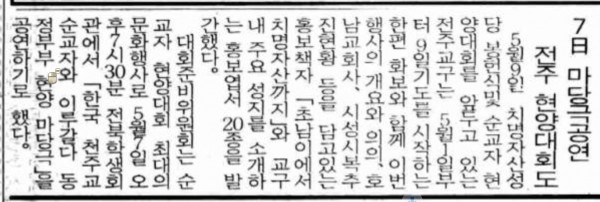 7日 마당극공연
전주 현양대회도
5월9일 치명자산성
당 봉헌식및 순교자 현
양대회를 앞두고 있는
전주교구는 5월1일부
터 9일기도를 시작하는
한편 화보와 함께 이번
행사의 개요와 의의, 호
남교회사, 시성시복추
진현황 등을 담고있는
홍보책자 「초남이에서
치명자산까지」와 교구
내 주요 성지를 소개하
는 홍보엽서 20종을 발
간했다.
대회준비위원회는 순
교자 현양대회 최대의
문화행사로 5월7일 오
후7시30분 전북학생회
관에서 「한국 천주교
순교자와 이루갈다 동
정부부 현양 마당극」을
공연하기로 했다.